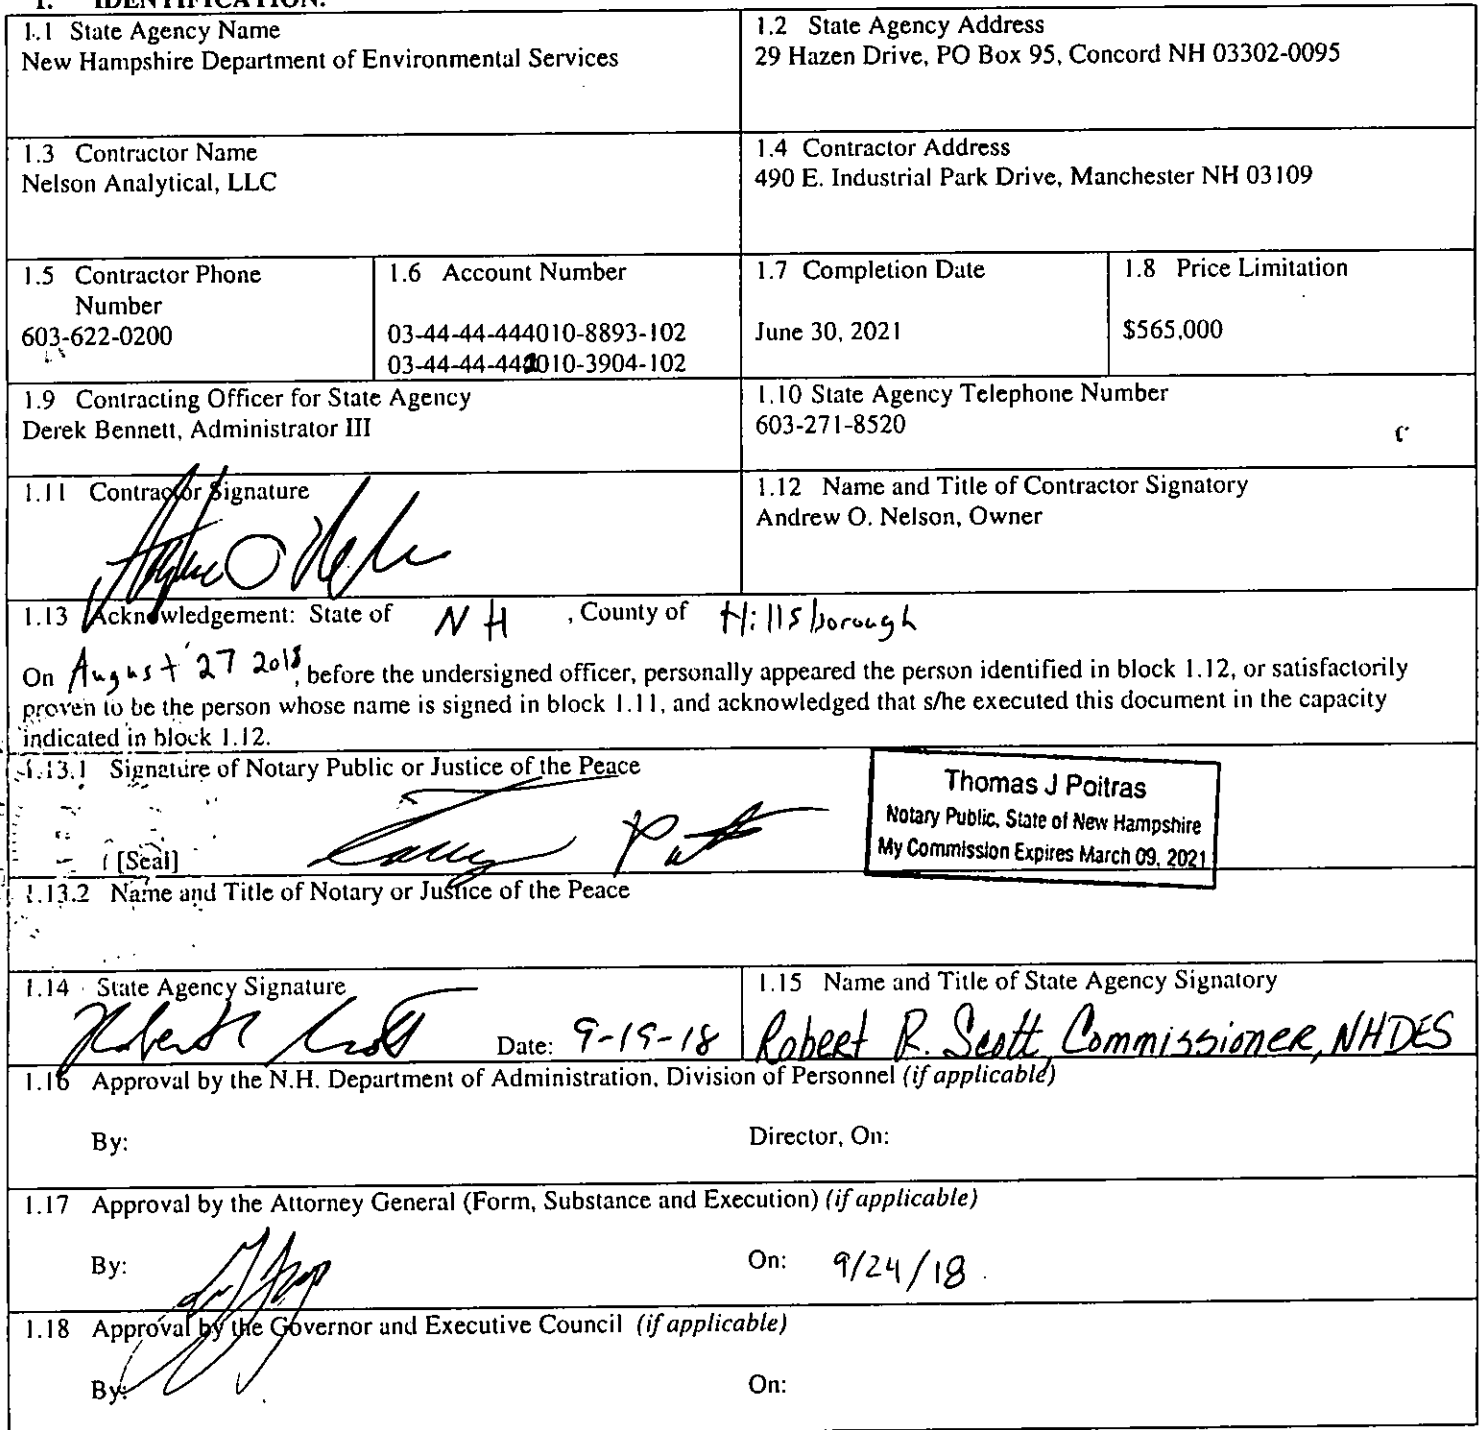 1. IDENTIFICATION.
1.1 State Agency Name
New Hampshire Department of Environmental Services
1.2 State Agency Address
29 Hazen Drive, PO Box 95, Concord NH 03302-0095
1.3 Contractor Name
Nelson Analytical, LLC
1.4 Contractor Address
490 E. Industrial Park Drive, Manchester NH 03109
1.5 Contractor Phone
Number
603-622-0200
1.6 Account Number
03-44-44-444010-8893-102
03-44-44-442010-3904-102
1.7 Completion Date
June 30, 2021
1.8 Price Limitation
$565,000
1.9 Contracting Officer for State Agency
Derek Bennett, Administrator III
1.10 State Agency Telephone Number
603-271-8520
1.11 Contractor Signature
1.12 Name and Title of Contractor Signatory
Andrew O. Nelson, Owner
1.13 Acknowledgement: State of NH , County of Hillsborough
On August 27 2018, before the undersigned officer, personally appeared the person identified in block 1.12, or satisfactorily
proven to be the person whose name is signed in block 1.11, and acknowledged that s/he executed this document in the capacity
indicated in block 1.12.
1.13.1 Signature of Notary Public or Justice of the Peace
[Seal]
Thomas J Poitras
Notary Public, State of New Hampshire
My Commission Expires March 09, 2021
1.13.2 Name and Title of Notary or Justice of the Peace
1.14 State Agency Signature
Date: 9-19-18
1.15 Name and Title of State Agency Signatory
Robert R. Scott, Commissioner, NHDES
1.16 Approval by the N.H. Department of Administration, Division of Personnel (if applicable)
By:
Director, On:
1.17 Approval by the Attorney General (Form, Substance and Execution) (if applicable)
By:
On: 9/24/18
1.18 Approval by the Governor and Executive Council (if applicable)
By:
On: